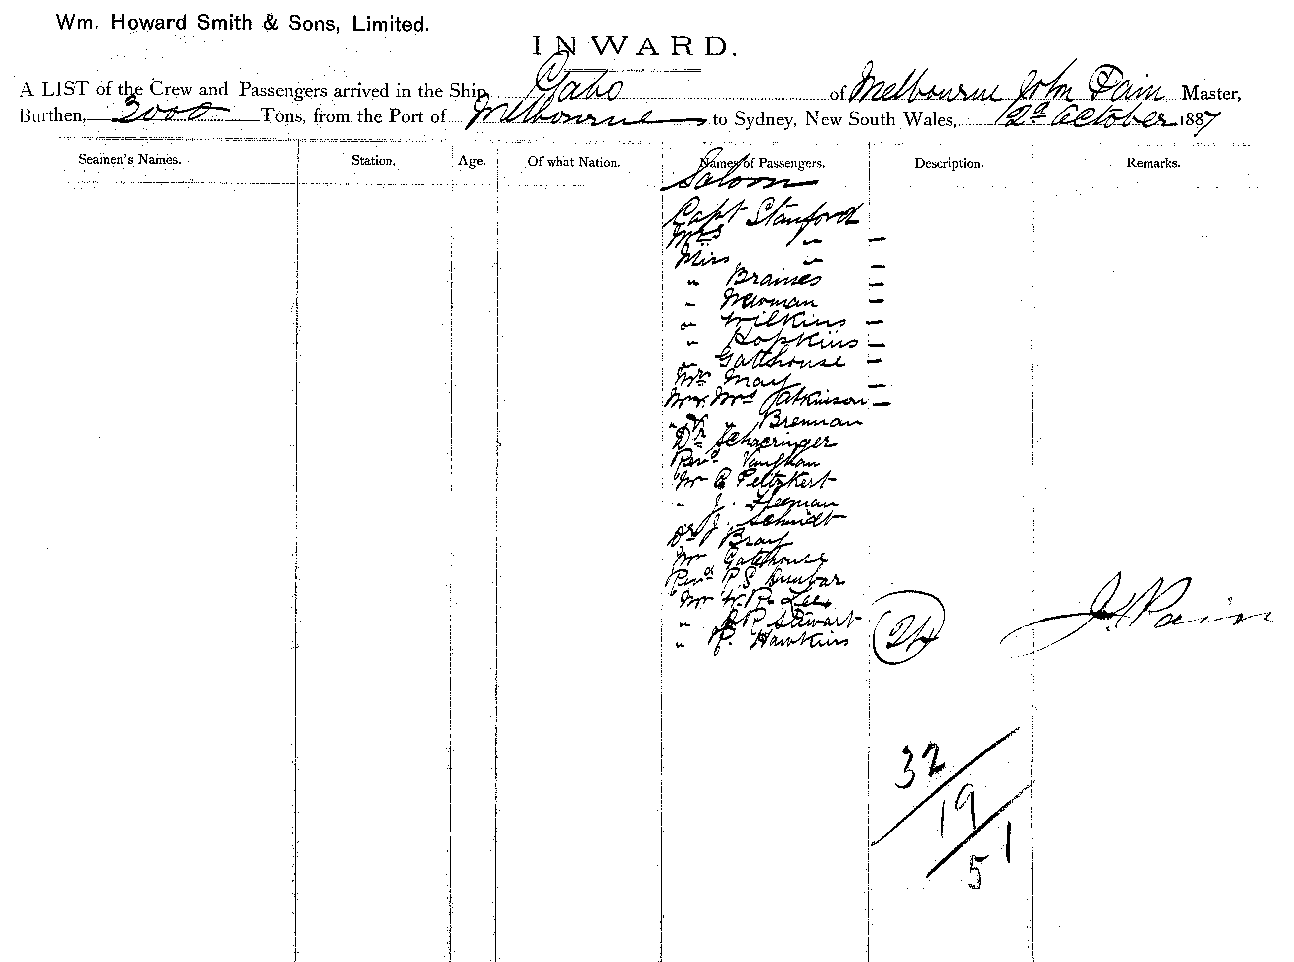 Wm. Howard Smith & Sons, Limited.
INWARD.
A LIST of the Crew and Passengers arrived in the Ship, Gabo of Melbourne John Pain Master,
Burthen, 3000 Tons, from the Port of Melbourne to Sydney, New South Wales, 12th October 1887
Seamen's Names. Station. Age. Of what Nation. Names of Passengers. Description. Remarks.
Saloon
Capt Stanford
Mrs " –
Miss " –
" Braines –
" Newman –
" Wilkins –
" Hopkins –
" Gatehouse –
Mrs May –
Mr. Mrs Atkinson –
" " Brennan
Dr Schaeringer
Revd Vaughan
Mr C Peltzkert
" J. Heeman
" J. Schmidt
Dr Bray
Mr Gatehouse
Revd P.S. Dunbar
Mr W.R. Lee
" J.R. Stewart
" R. Hawkins
24
J. Pain
32
19
51